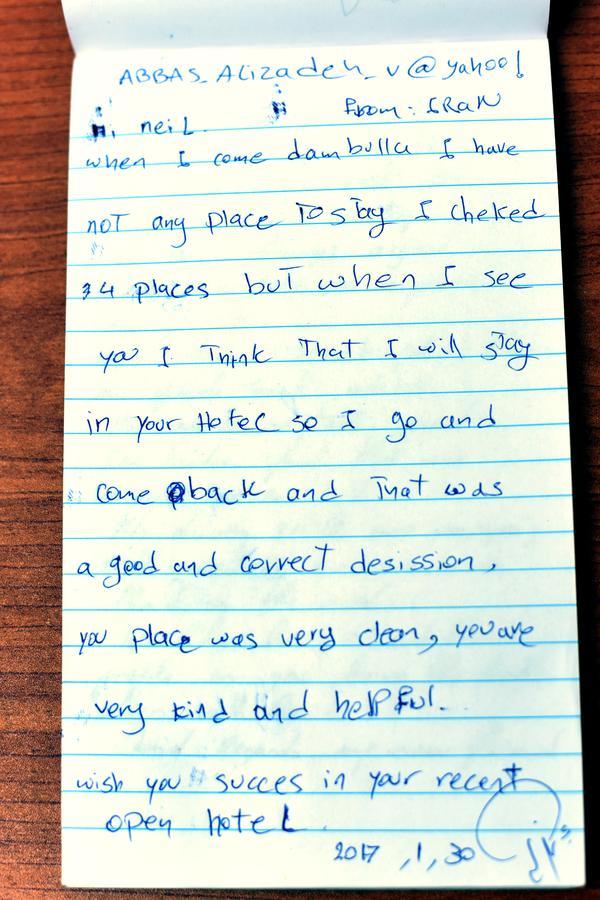 ABBAS_Alizadeh_v@yahoo!
From: IRaN
Hi neil.
when I come dambulla I have
not any place To sTay I cheked
34 places buT when I see
you I Think That I will sTay
in your Hotel so I go and
come back and That was
a good and correcT desission,
you place was very clean, you are
very kind and helpful.
wish you succes in your recent
open hotel
2017 ,1,30